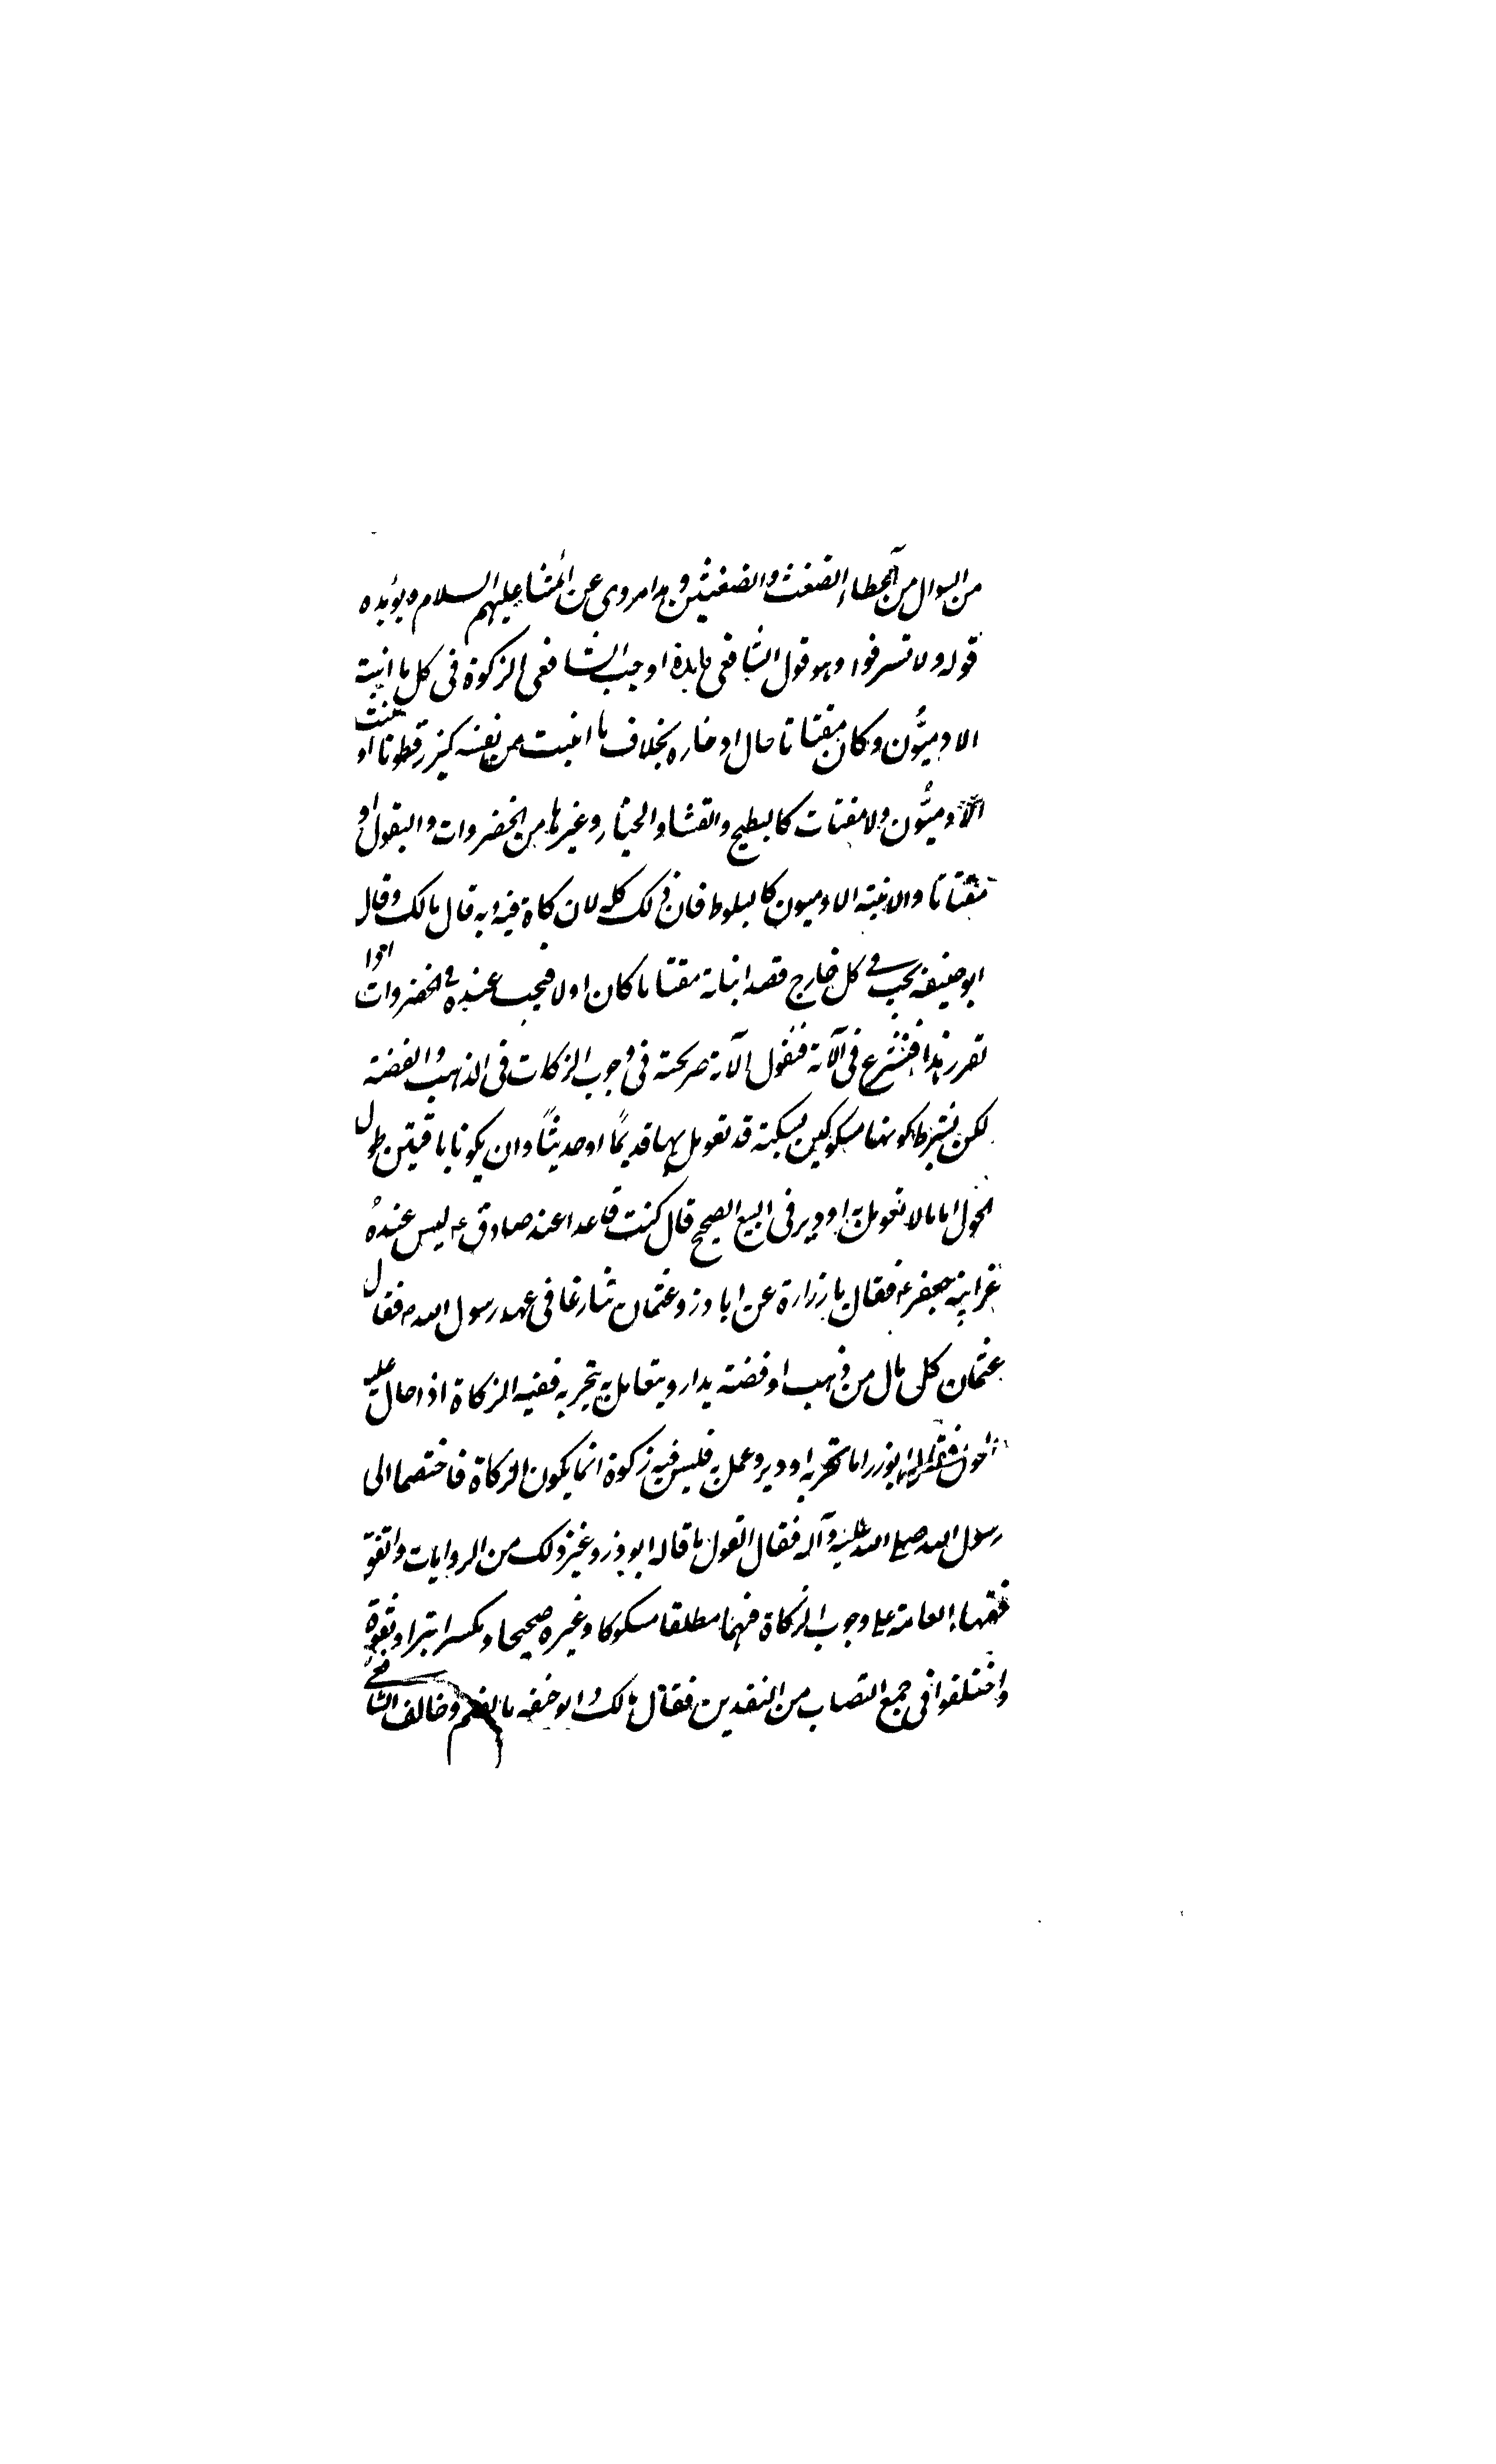 من السوال من اعطاء الضغث والضغثين وهذا مروى عن ائمتنا عليهم السلام ويؤيده
قوله ولا تسرفوا وهو قول الشافعى اوجب الشافعى الزكوة فى كل ما انبت
الادميّون وكان مقتاتا حال ادخاره بخلاف ما انبت من نفسه كبزر قطونا او
الادميّون ولا مقتات كالبطيح والقثا والخيار وغيرها من الخضروات والبقول او
مقتاتا والانبته الادميون كالبلوط فان ذلك كله لان كاة فيه وبه قال مالك وقال
ابو حنيفه يجب فى كل خارج قصد انباته مقتاتا كان اولا فيجب عنده فى الخضروات اذا
تقرر هذا فنشرع فى الآية فنقول الآية صريحة فى وجوب الزكات فى الذهب والفضة
لكن بشرط كونهما مسكوكين بسكة قد تعومل بها قديمًا او حديثًا وان يكونا باقيتين طول
الحول اما مالا تعومل به او دير فى البيع الصحيح قال كنت قاعدا عند صادق ع ليس عنده
غير ابنه جعفر ع فقال يا زرارة عن ابا ذر وعثمان تنازعا فى عهد رسول الله ص فقال
عثمان كل مال من ذهب او فضة يدار ويتعامل به يتجر به ففيه الزكاة اذا حال عليه
الحول فقال ابوذر اما تجر به او دير وعمل به فليس فيه زكوة انما يكون الزكاة فاختصما الى
رسول الله صلى الله عليه وآله فقال القول ما قاله ابو ذر وغير ذلك من الروايات واتفق
فقهاء العامة على وجوب الزكاة فيهما مطلقا مسكوكا وغيره صحيحا ومكسرا تبرا ونقرة
واختلفوا فى جمع النصاب من النقدين فقال مالك وابو حنيفه بالضم وخالف الشافعى